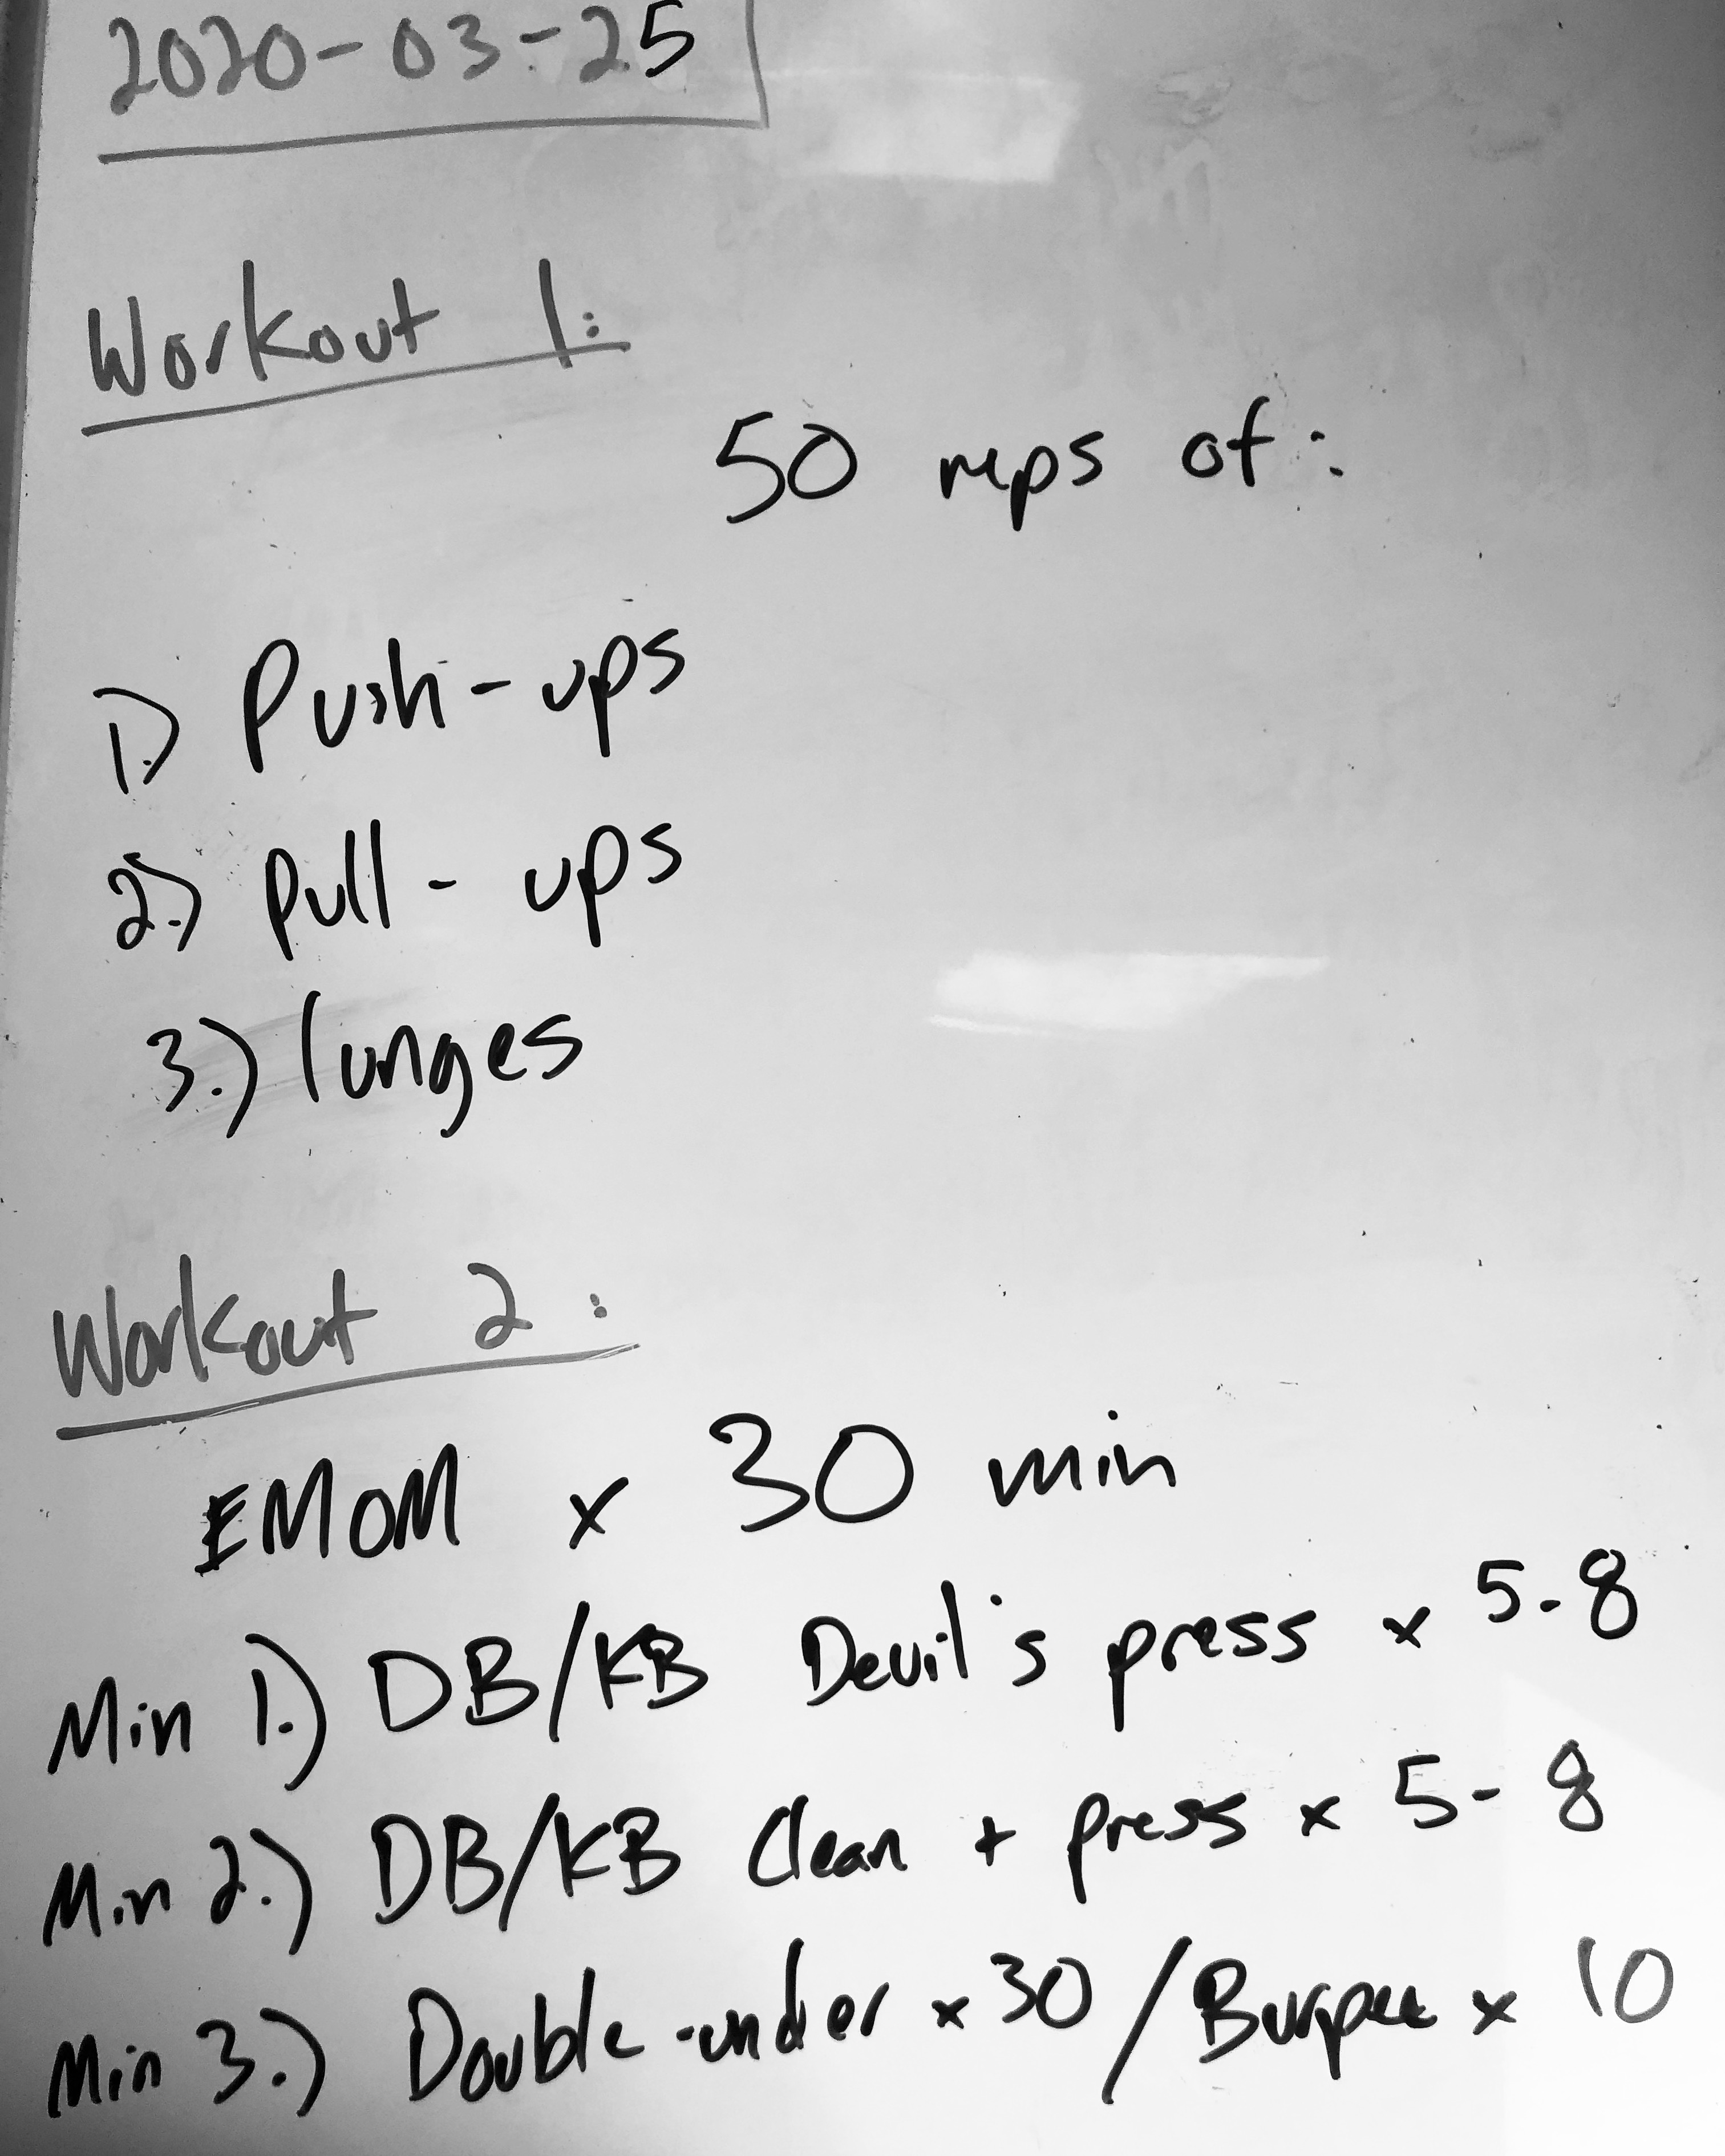 2020-03-25
Workout 1:
50 reps of:
1.) Push-ups
2.) Pull-ups
3.) lunges
Workout 2:
EMOM x 30 min
Min 1.) DB/KB Devil's press x 5-8
Min 2.) DB/KB Clean + press x 5-8
Min 3.) Double-under x 30 / Burpee x 10